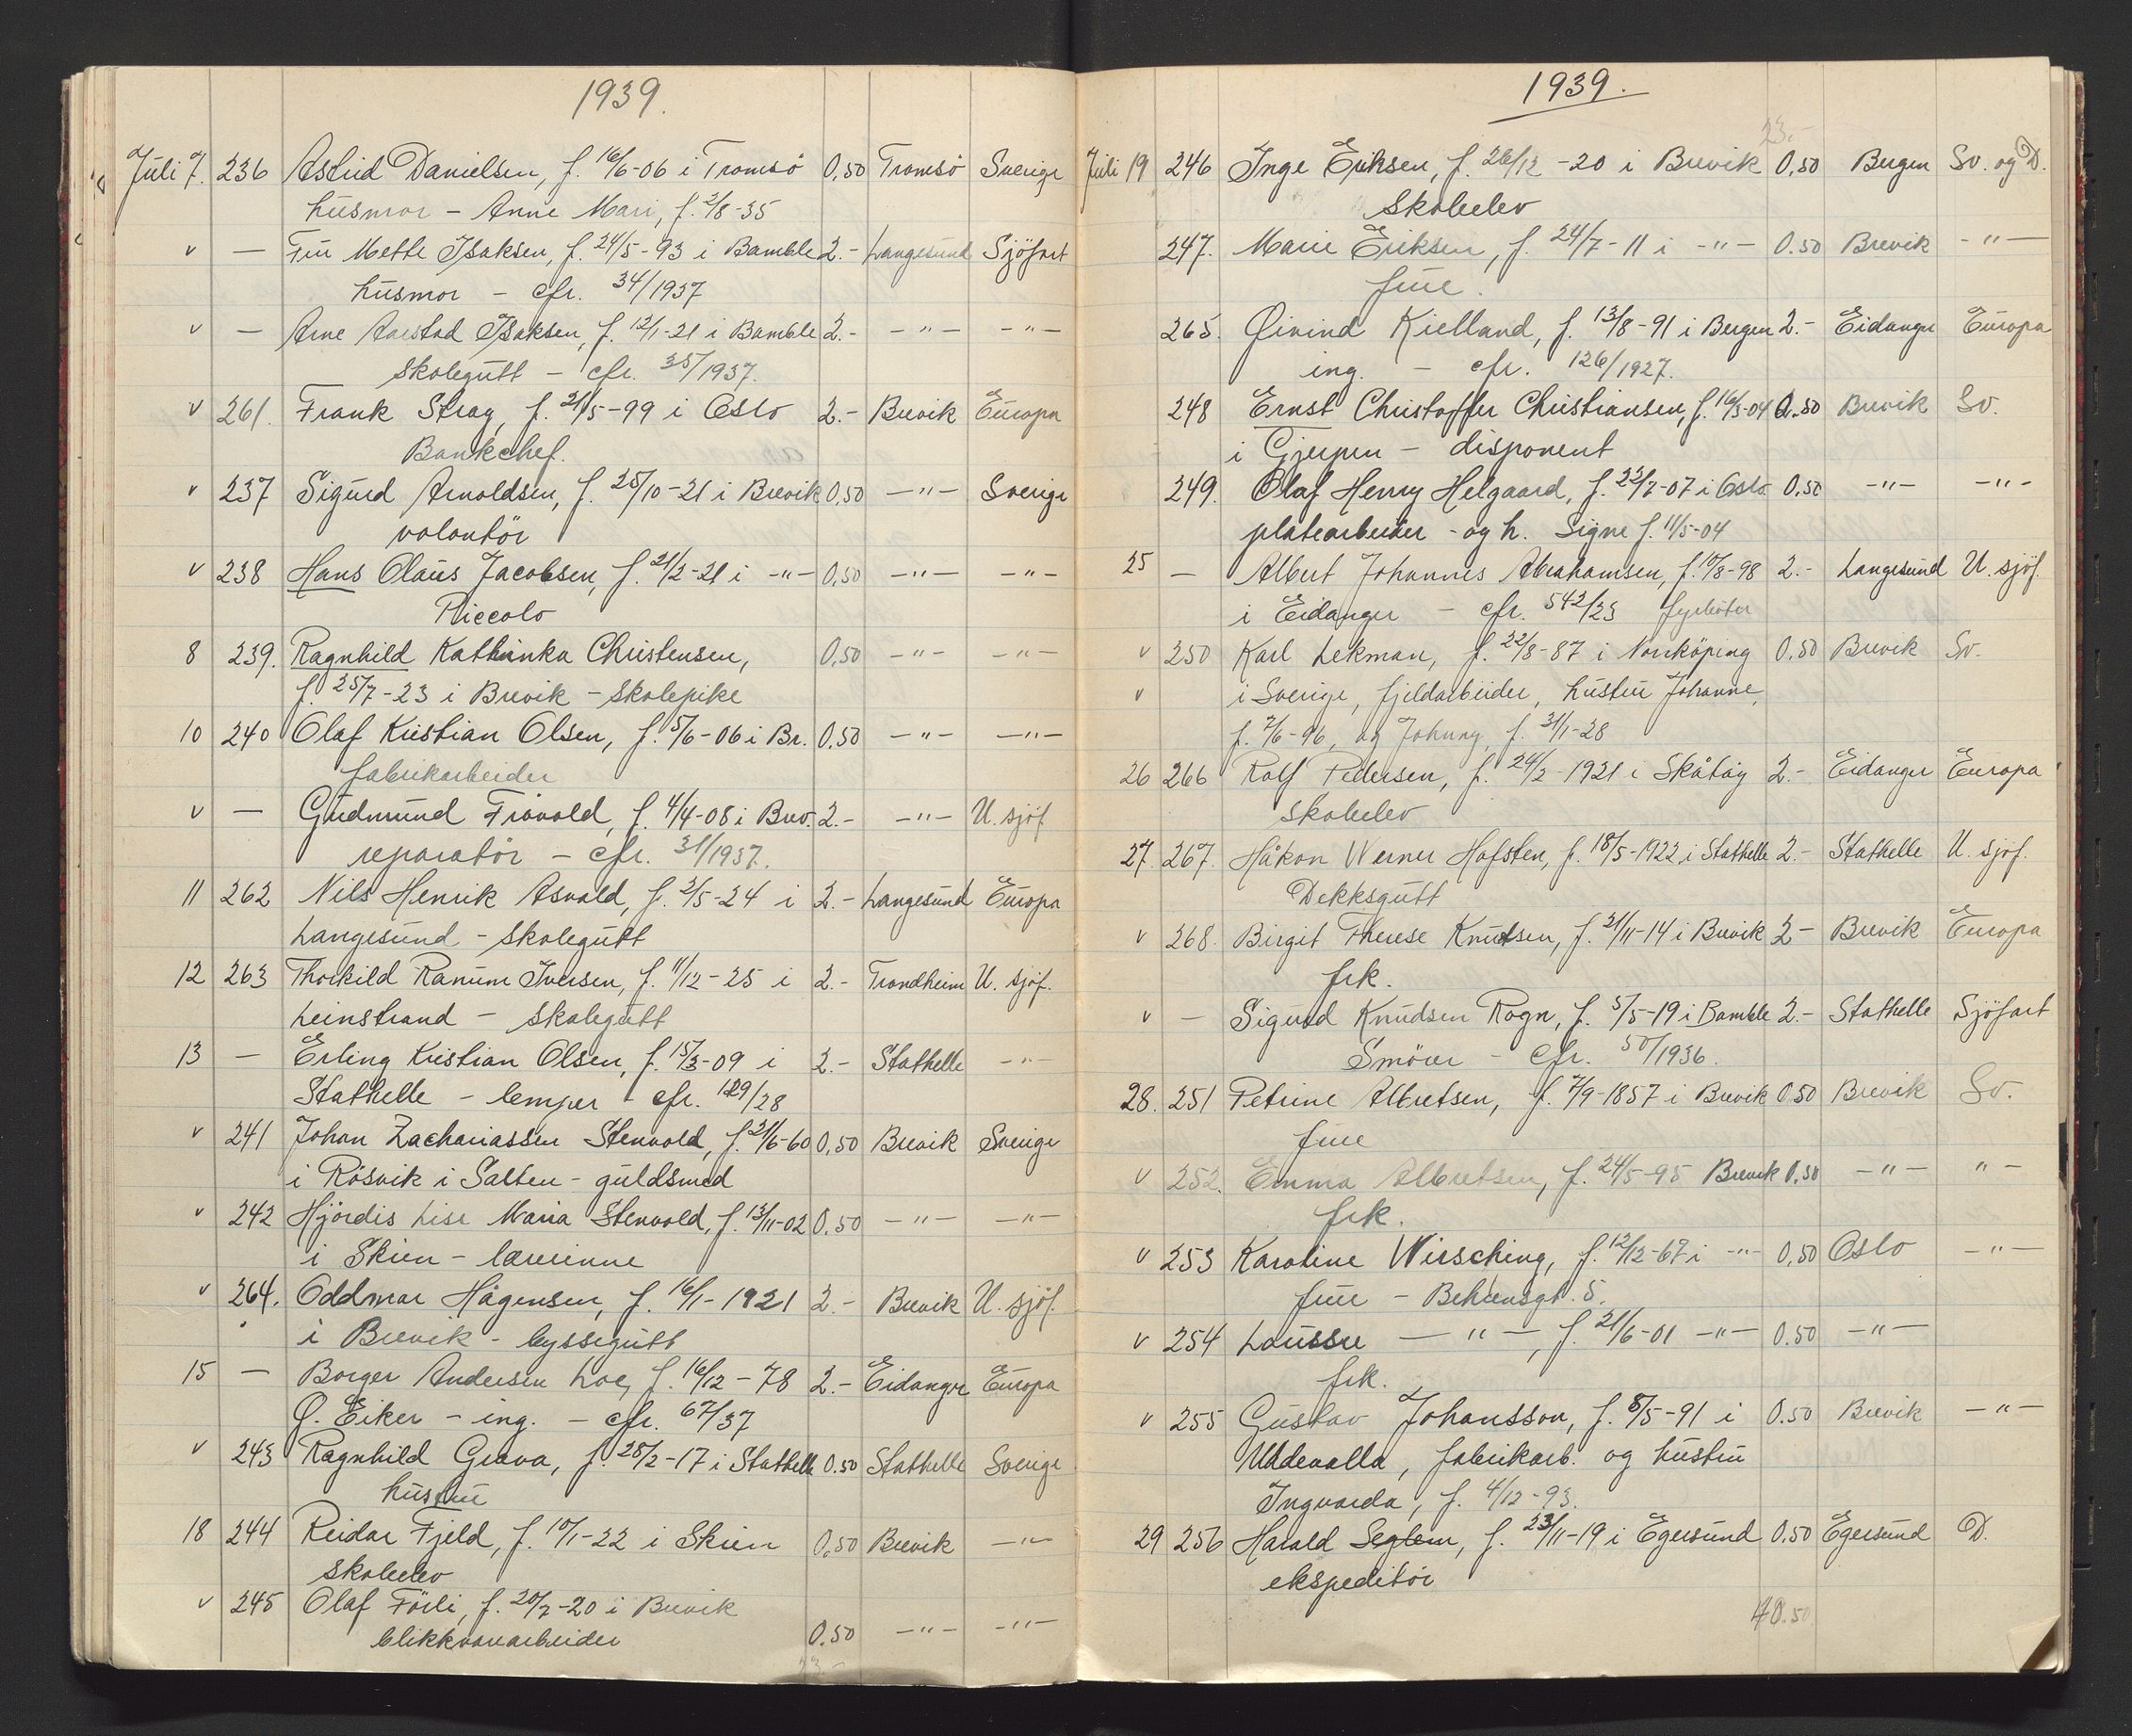 1939.
Juli 7. 236 Astrid Danielsen, f. 16/6-06 i Tromsö 0,50 Tromsö Sverige
husmor - Anne Mari, f. 2/8-35
v — Fru Mette Isaksen, f. 24/5-93 i Bamble 2.- Langesund Sjöfart
husmor - cfr. 34/1937
v — Arne Aarstad Isaksen, f. 12/1-21 i Bamble 2.- -"- -"-
skolegutt - cfr. 35/1937.
v 261. Frank Strag, f. 21/5-99 i Oslo 2.- Brevik Europa
Bankchef.
v 237 Sigurd Arnoldsen, f. 25/10-21 i Brevik 0,50 -"- Sverige
volontör
v 238 Hans Olaus Jacobsen, f. 21/2-21 i -"- 0,50 -"- -"-
Piccolo
8 239. Ragnhild Kathinka Christensen, 0,50 -"- -"-
f. 25/7-23 i Brevik - skolepike
10 240 Olaf Kristian Olsen, f. 5/6-06 i Br. 0,50 -"- -"-
fabrikarbeider
v — Gudmund Frövold, f. 4/4-08 i Brev. 2.- -"- U. sjöf.
reparatör - cfr. 31/1937.
11 262 Nils Henrik Asvald, f. 2/5-24 i 2.- Langesund Europa
Langesund - skolegutt
12 263 Thorkild Ranum Iversen, f. 11/12-25 i 2.- Trondheim U. sjöf.
Leinstrand - skolegutt
13 — Erling Kristian Olsen, f. 15/3-09 i 2.- Stathelle -"-
Stathelle - lemper - cfr. 129/28
v 241 Johan Zachariassen Stenvold, f. 21/6-60 0,50 Brevik Sverige
i Rösvik i Salten - guldsmed
v 242 Hjördis Lise Maria Stenvold, f. 13/11-02 0,50 -"- -"-
i Skien - lærerinne
v 264. Oddmar Hågensen, f. 16/1-1921 2.- Brevik U. sjöf.
i Brevik - byssegutt
15 — Borger Andersen Loe, f. 16/12-78 2.- Eidanger Europa
Ö. Eiker - ing. - cfr. 67/37
v 243 Ragnhild Grava, f. 28/2-17 i Stathelle 0.50 Stathelle Sverige
hustru
18 244 Reidar Fjeld, f. 10/1-22 i Skien 0,50 Brevik -"-
skoleelev
v 245 Olaf Förli, f. 20/7-20 i Brevik
blikkvarearbeider 0.50 -"- -"-
23.-
1939.
23.-
Juli 19 246 Inge Eriksen, f. 26/12-20 i Brevik 0,50 Bergen Sv. og D.
Skoleelev
247. Marie Eriksen, f. 24/7-11 i -"- 0.50 Brevik -"-
frue.
265. Öivind Kielland, f. 13/8-91 i Bergen 2.- Eidanger Europa
ing. - cfr. 126/1927.
248 Ernst Christoffer Christiansen, f. 16/3-04 0.50 Brevik Sv.
i Gjerpen - disponent
249. Olaf Henry Helgaard, f. 22/7-07 i Oslo 0,50 -"- -"-
platearbeider - og h. Signe f. 11/5-04
25 — Albert Johannes Abrahamsen, f. 10/8-98 2.- Langesund U. sjöf.
i Eidanger - cfr. 542/23 fyrböter
v 250 Karl Lekman, f. 22/8-87 i Norrköping 0,50 Brevik Sv.
v i Sverige, fjeldarbeider, hustru Johanne,
f. 7/6-96, og Johnny, f. 31/1-28
26 266 Rolf Pedersen, f. 24/2-1921 i Skåtöy 2.- Eidanger Europa
skoleelev
27. 267. Håkon Werner Hafsten, f. 18/5-1922 i Stathelle 2.- Stathelle U. sjöf.
Dekksgutt
v 268. Birgit Therese Knudsen, f. 21/11-14 i Brevik 2- Brevik Europa
frk.
v — Sigurd Knudsen Rogn, f. 5/5-19 i Bamble 2.- Stathelle Sjöfart
Smörer - cfr. 50/1936.
28. 251 Petrine Albretsen, f. 7/9-1857 i Brevik 0.50 Brevik Sv.
frue
v 252. Emma Albretsen, f. 24/5-95 Brevik 0,50 -"- "-
frk.
v 253 Karoline Wirsching, f. 12/12-67 i -"- 0,50 Oslo -"-
frue - Behrensgt. 5.
v 254 Loussie -"-, f. 21/6-01 -"- 0.50 -"-
frk.
v 255 Gustav Johansson, f. 8/5-91 i 0.50 Brevik -"-
Uddevalla, fabrikarb. og hustru
Ingvarda, f. 4/12-93.
29 256 Harald Seglem, f. 23/11-19 i Egersund 0.50 Egersund D.
ekspeditör
40.50